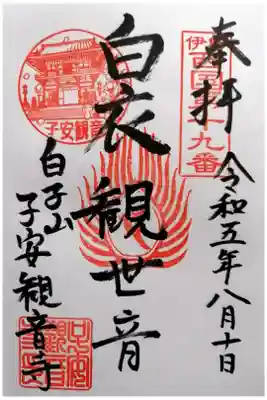 奉拝
令和五年八月十日
白衣観世音
白子山
子安観音寺
十九番
子安観音